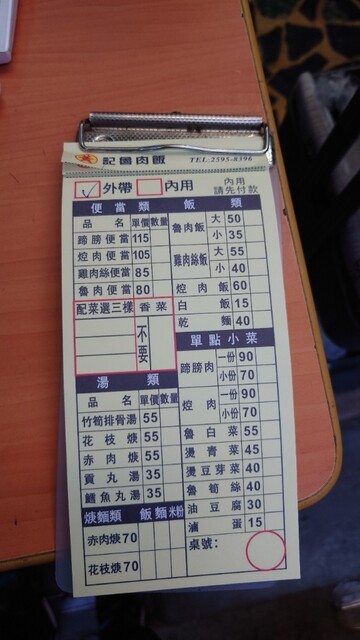 記魯肉飯 TEL:2595-8396
✓外帶 □內用 內用請先付款
便當類
品名 單價 數量
蹄膀便當 115
焢肉便當 105
雞肉絲便當 85
魯肉便當 80
配菜選三樣 香菜
不要
湯類
品名 單價 數量
竹筍排骨湯 55
花枝焿 55
赤肉焿 55
貢丸湯 35
鱈魚丸湯 35
焿麵類 飯 麵 米粉
赤肉焿 70
花枝焿 70
飯類
魯肉飯 大 50
小 35
雞肉絲飯 大 55
小 40
焢肉飯 60
白飯 15
乾麵 40
單點小菜
蹄膀肉 一份 90
小份 70
焢肉 一份 90
小份 70
魯白菜 55
燙青菜 45
燙豆芽菜 40
魯筍絲 40
油豆腐 30
滷蛋 15
桌號: